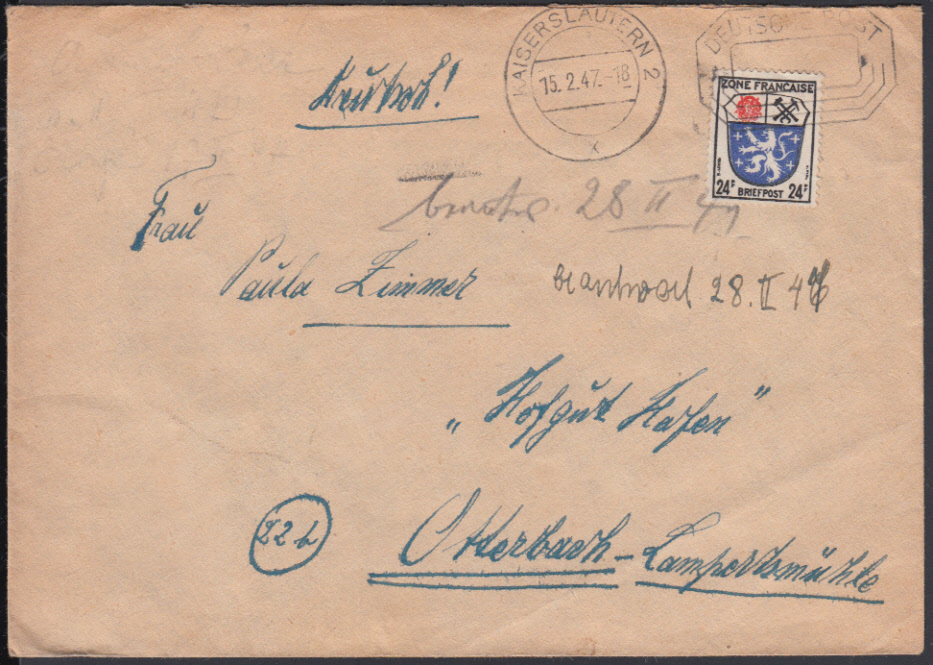 KAISERSLAUTERN 2
15.2.47.-18
x
DEUTSCHE POST
ZONE FRANCAISE
24 F BRIEFPOST 24 F
Deutsch!
28 II 47
Frau
Paula Zimmer
beantwort 28. II 47
„Hofgut Hafen"
22b
Otterbach-Lampertsmühle